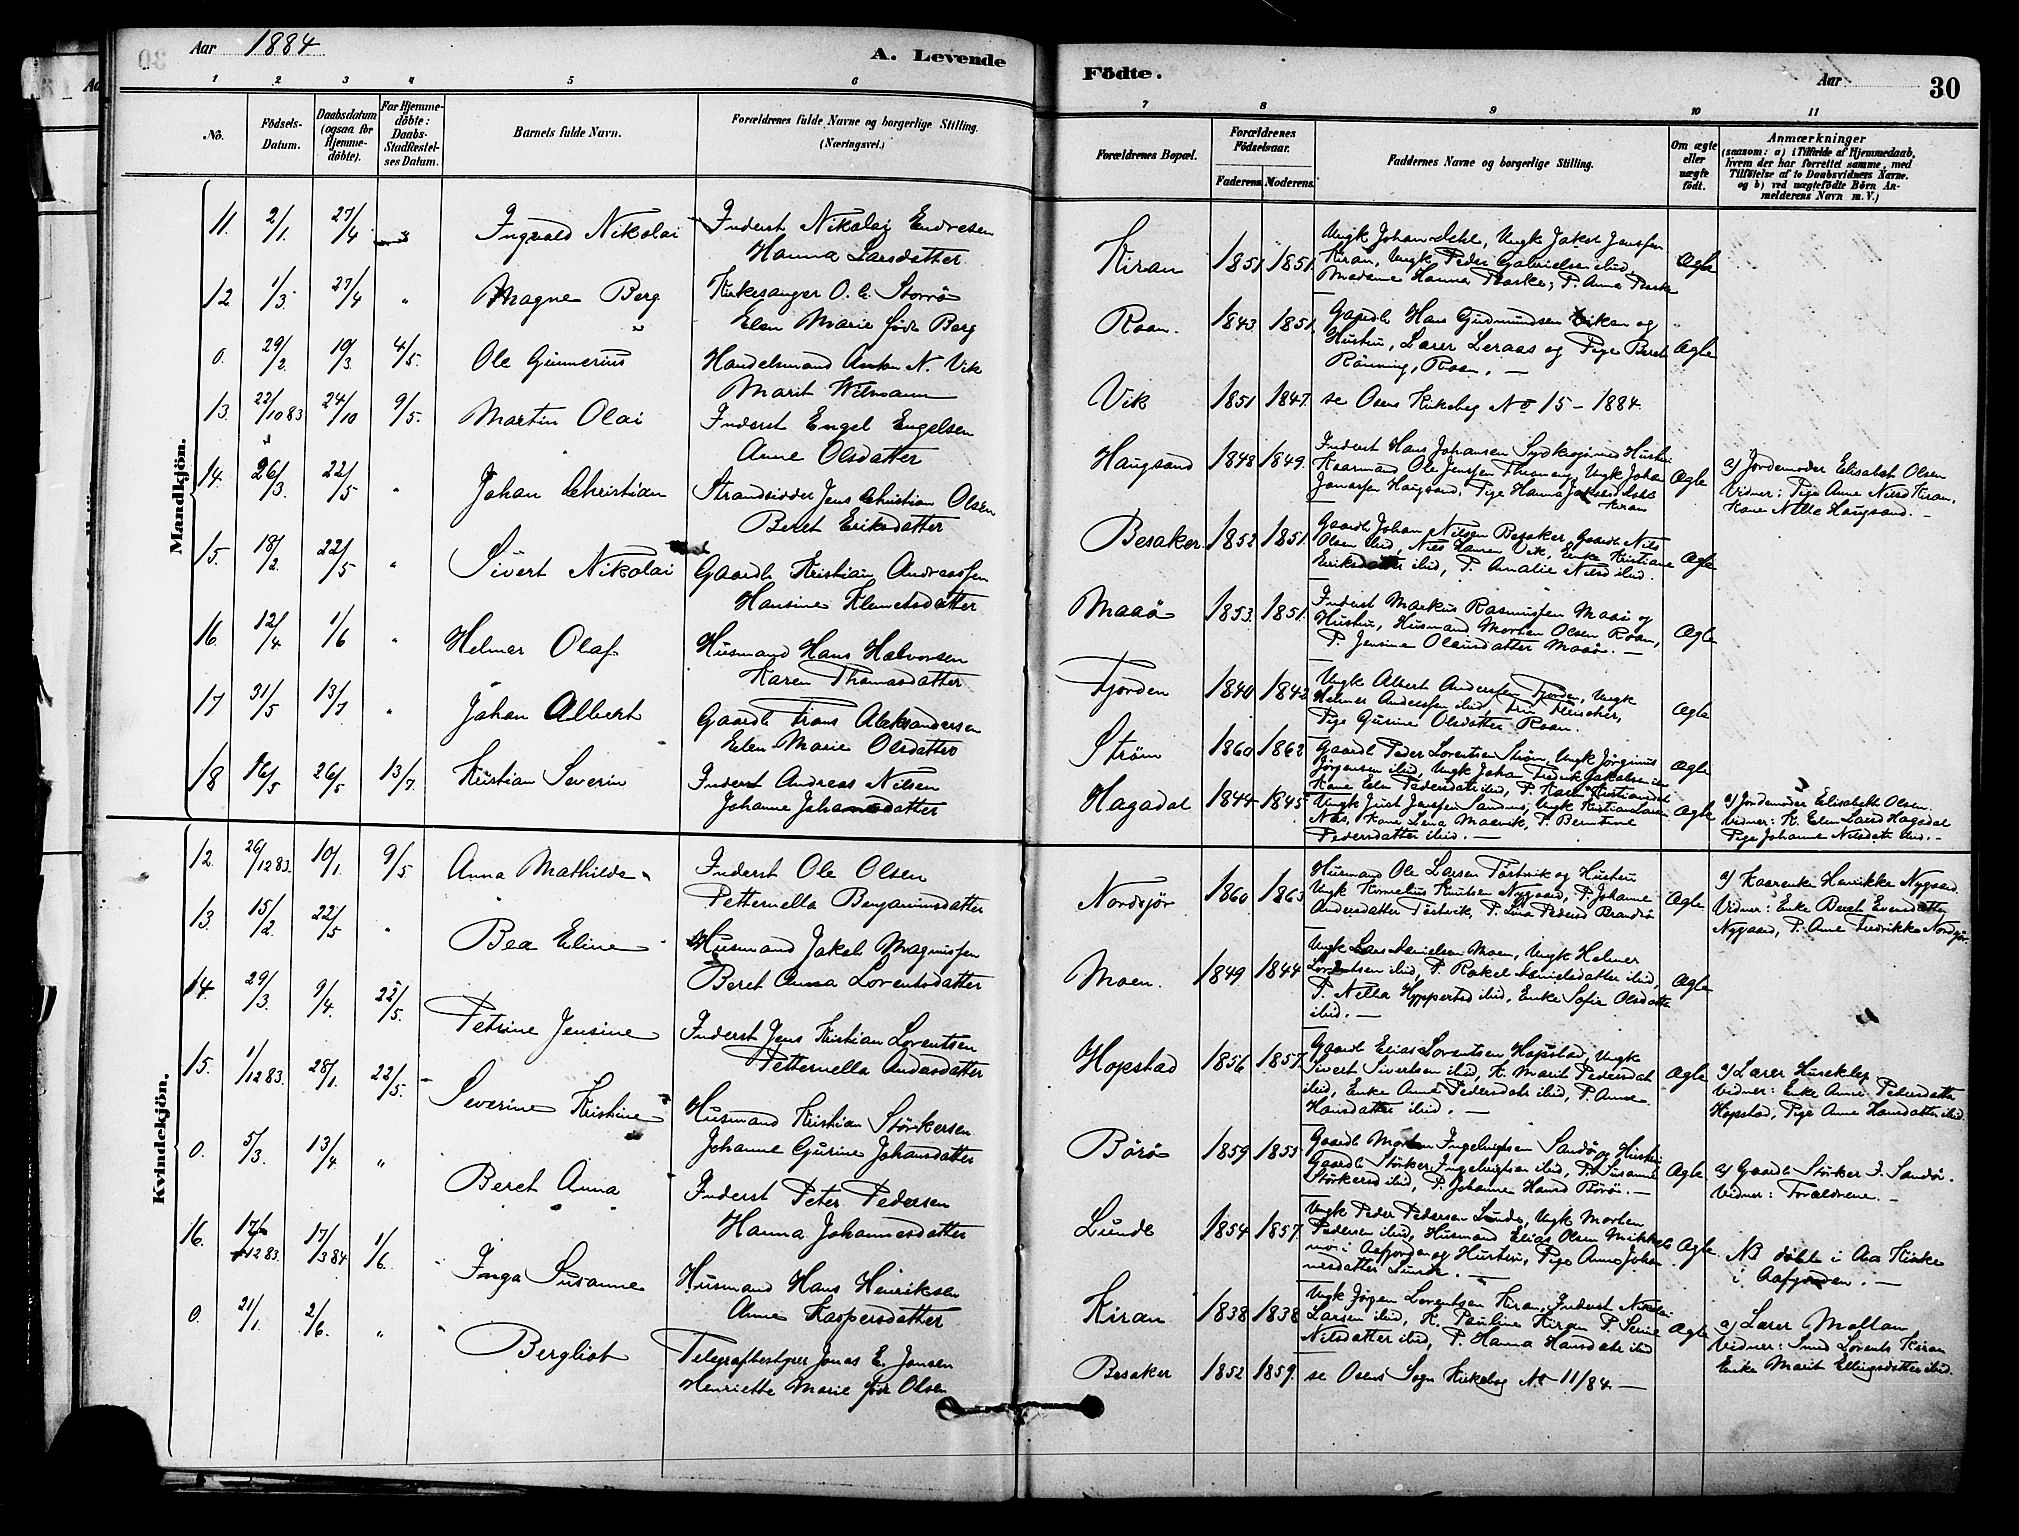 Aar 1884
A. Levende
Födte.
Aar
30
1 2 3 4 5 6 7 8 9 10 11
No.
Födsels-
Datum.
Daabsdatum
(ogsaa for
Hjemme-
döbte).
For Hjemme-
döbte:
Daabs-
Stadfæstel-
ses Datum.
Barnets fulde Navn.
Forældrenes fulde Navne og borgerlige Stilling.
(Næringsvei.)
Forældrenes Bopæl.
Forældrenes
Födselsaar.
Faderens. Moderens.
Faddernes Navne og borgerlige Stilling.
Om ægte
eller
uægte
født.
Anmærkninger
(saasom: a) i Tilfælde af Hjemmedaab,
hvem der har forrettet samme, med
Tilføielse af to Daabsvidners Navne.
og b) ved uægtefödte Börn An-
melderens Navn m.V.)
Mandkjön.
11. 2/1. 27/4 " Ingvald Nikolai Inderst Nikolai Endresen
Hanna Larsdatter
Kiran 1851. 1851.
Kiran, Ungk. Peder Gabrielsen ibid,
Madame Hanna
Ægte
12 1/3. 27/4 " Magne Berg Kirkesanger O. C. Storrø
Elen Marie født Berg
Roan. 1843 1851. Gaardb Hans Gudmundsen Viken og
Hustru, Lærer Leraas og Pige Beret
Rönning, Roan. —
Ægte
0. 29/2. 19/3. 4/5. Ole Gunnerius Handelsmand Anton N. Vik
Marit Wilmann
Vik 1851 1847. se Osens Kirkebog No 15 - 1884.
13. 22/10 83 24/10 9/5. Martin Olai Inderst Engel Engelsen
Anne Olsdatter
Haugsand 1848 1849. Inderst Hans Johansen
Kaarmand Ole Jenssen
Haugsand, Pige Hanna
Kiran
Ægte
a) Jordemoder Elisabet Olsen
Vidner: Pige Anne Nilsd Kiran,
Kone Nilla Haugsand. —
14. 26/3. 22/5 " Johan Christian Strandsidder Jens Christian Olsen
Beret Eriksdatter
Besaker 1852 1851. Gaardb Johan Nilsen Besaker, Gaardb Nils
Olsen ibid, Nils Vik, Enke Kristiane
Eriksdatter ibid, P. Amalie Nilsd ibid.
Ægte
15. 18/2. 22/5 " Sivert Nikolai Gaardb Kristian Andreassen
Hansine Klemetsdatter
Maasö 1853. 1851. Inderst Markus Rasmussen Maasö og
Hustru, Husmand Morten Olsen Roan,
P. Jensine Olausdatter Maasö. —
Ægte
16. 12/4 1/6 " Helmer Olaf Husmand Hans Halvorsen
Karen Thomasdatter
Fjorden 1840 1842 Ungk Albert Anderssen Fjorden, Ungk
Helmer Anderssen ibid,
Pige Gurine Olsdatter Roan.
Ægte
17 31/5 13/7 " Johan Albert Gaardb Frans Aleksandersen
Elen Marie Olsdatter
Ström 1860 1862 Gaardb Peder Lorentsen Ström, Ungk Jörginus
Jörgensen ibid, Ungk Johan Fredrik Jakobsen ibid
Kone Elen Pedersdatr ibid, P. Karen Kristiansdat
Ægte
18 16/5 26/5 13/7. Kristian Severin Inderst Andreas Nilsen
Johanne Johannesdatter
Hagadal 1844 1845 Ungk Just Jenssen Sandnes, Ungk Kristian Larsen
Næs, Kone Lena P. Berntine
Pedersdatter ibid. —
Ægte
a) Jordemoder Elisabeth Olsen.
Vidner: K. Elen Larsd Hagadal
Pige Johanne Nilsdatr ibid. —
Kvindekjön.
12. 26/12 83. 10/1. 9/5 Anna Mathilde Inderst Ole Olsen
Petternella Benjaminsdatter
Nordsjör 1860 1863 Husmand Ole Larsen Törtvik og Hustru
Ungk Kornelius Knutsen Nygaard, P. Johanne
Andersdatter Törtvik, P. Lina Pedersd Brandsö
Ægte
a) Kaarenke Henrikke Nygaard.
Vidner: Enke Beret Evensdatter
Nygaard, P. Ane Fredrikke Nordsjör.
13. 15/2. 22/5 " Bea Eline Husmand Jakob Magnussen
Beret Anna Lorentsdatter
Moen. 1849 1844 Ungk Lars Danielsen Moen, Ungk Helmer
Lorentsen ibid, P. Rakel Danielsdatter ibid,
P. Nella ibid, Enke Sofie Olsdatter
ibid. —
Ægte
14. 29/3 9/4. 22/5. Petrine Jensine Inderst Jens Kristian Lorentsen
Petternella Andersdatter
Hopstad 1856 1857. Gaardb Elias Lorentsen Hopstad, Ungk
Sivert Sivertsen ibid, K. Marit Pedersdat
ibid, Enke Anne Pedersdatr ibid, P. Anne
Hansdatter ibid. —
Ægte
a) Lærer Huseklep
Vidner: Enke Anne Pedersdatter
Hopstad, Pige Anne Hansdatter ibid.
15. 1/12 83. 28/1. 22/5. Severine Kristine Husmand Kristian Störkersen
Johanne Gurine Johansdatter
Börö 1859 1855 Gaardb Morten Ingebrigtsen Sandö og Hustru
Gaardb Störker Ingebrigtsen ibid, P. Susanne
Störkersd ibid, P. Johanne Hansd Börö. —
Ægte
a) Gaardb Störker I. Sandö.
Vidner: Forældrene. —
0. 5/3. 13/4 " Beret Anna Inderst Peter Pedersen
Hanna Johannesdatter
Lunde 1854 1857. Ungk Peder Pedersen Lunde, Ungk Morten
Pedersen ibid, Husmand Elias Olsen
i Aafjorden og Hustru, Pige Anne Johan
nesdatter Lunde. —
Ægte
NB döbt i Aa Kirke
i Aafjorden. —
16. 17/12 83. 17/3 84 1/6. Inga Susanne Husmand Hans Henriksen
Anne Kaspersdatter
Kiran 1838 1838 Ungk Jörgen Lorentsen Kiran, Inderst Nikolai
Larsen ibid, K. Pauline Kiran P. Serine
Nilsdatter ibid, P. Hanna Hansdatr ibid
Ægte
a) Lærer Moltan
Vidner: Smed Lorents Kiran
Enke Marit Ellingsdatter ibid.
0. 21/1. 2/6. " Bergliot Telegrafbestyrer Jonas E. Jensen
Henriette Marie født Olsen
Besaker 1852 1859. se Osens Sogn Kirkebog No 11/84 —